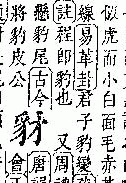 似虎而小白面毛赤
易革卦君子豹變
註程即豹也 又周禮
懸豹尾古今
將豹皮公
豺
唐
會正